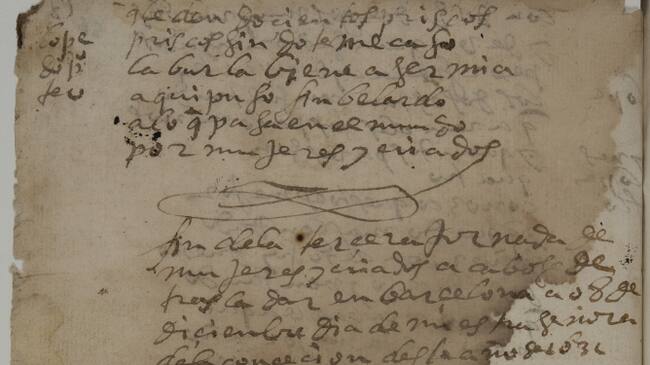 que den docientos priscos
lope priscos sin dote me caso
la burla viene a ser mia
teo aqui puso fin belardo
a lo q̃ pasa en el mundo
por mujeres y criados
fin dela tercera jornada de
mujeres y criados acabose de
trasladar en barcelona a 08 de
diciembre dia de nuestra señora
dela concecion deste año de 1631